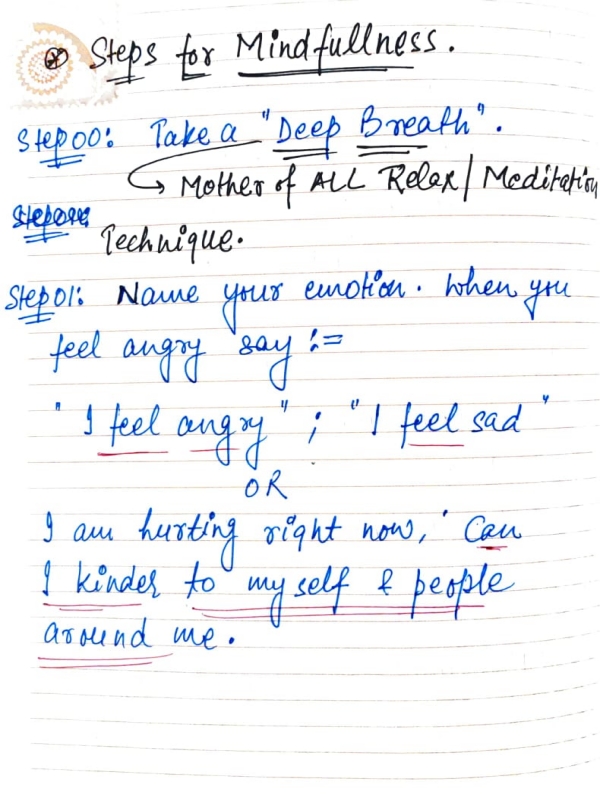 Steps for Mindfullness.
Step00: Take a "Deep Breath".
Mother of ALL Relax/Meditation
Technique.
Step01: Name your emotion. When you
feel angry say :=
"I feel angry" ; "I feel sad"
OR
I am hurting right now, ' Can
I kinder to my self & people
around me.